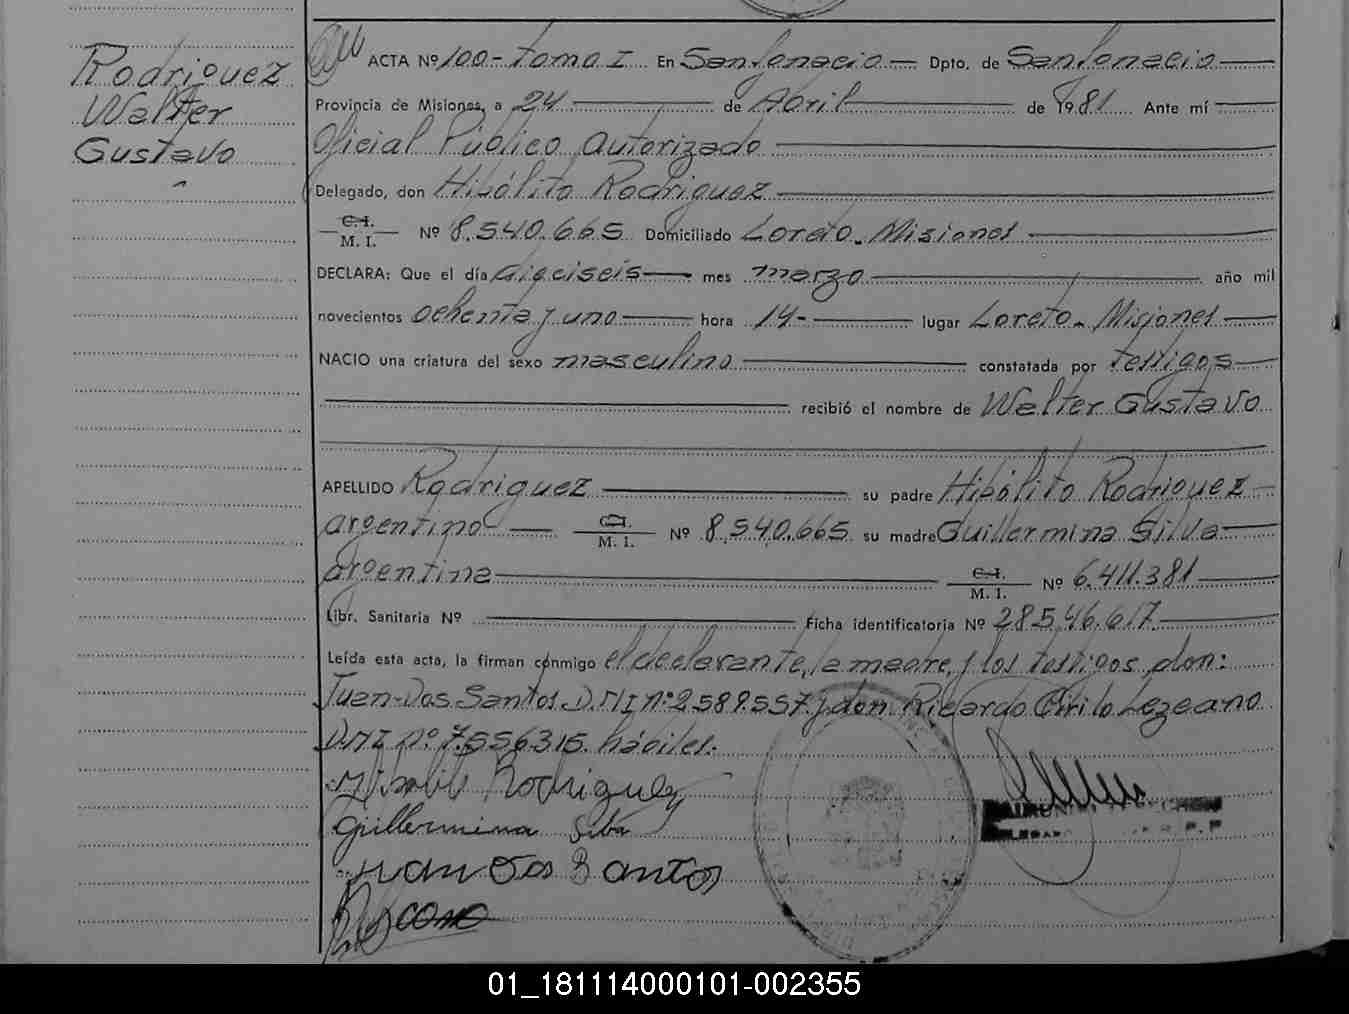 Rodriguez
Walter
Gustavo
ACTA Nº 100- Tomo I En San Ignacio Dpto. de San Ignacio
Provincia de Misiones, a 24 de Abril de 1981 Ante mí
Oficial Público Autorizado
Delegado, don Hipólito Rodriguez
C.I.
M. I. Nº 8.540.665 Domiciliado Loreto. Misiones
DECLARA: Que el día dieciseis mes marzo año mil
novecientos ochenta y uno hora 14- lugar Loreto. Misiones
NACIO una criatura del sexo masculino constatada por testigos
recibió el nombre de Walter Gustavo
APELLIDO Rodriguez su padre Hipólito Rodriguez
argentino C.I.
M. I. Nº 8.540.665 su madre Guillermina Silva
argentina C.I.
M. I. Nº 6.411.381
Libr. Sanitaria Nº Ficha identificatoria Nº 28.546.617
Leída esta acta, la firman conmigo el declarante, la madre, y los testigos don:
Juan Dos Santos D.M.I nº 2.589.557. y don Ricardo Cirilo Lezcano
D.M.I nº 7.556315. hábiles.
Hipolito Rodriguez
Guillermina Silva
Juan Dos Santos
01_181114000101-002355